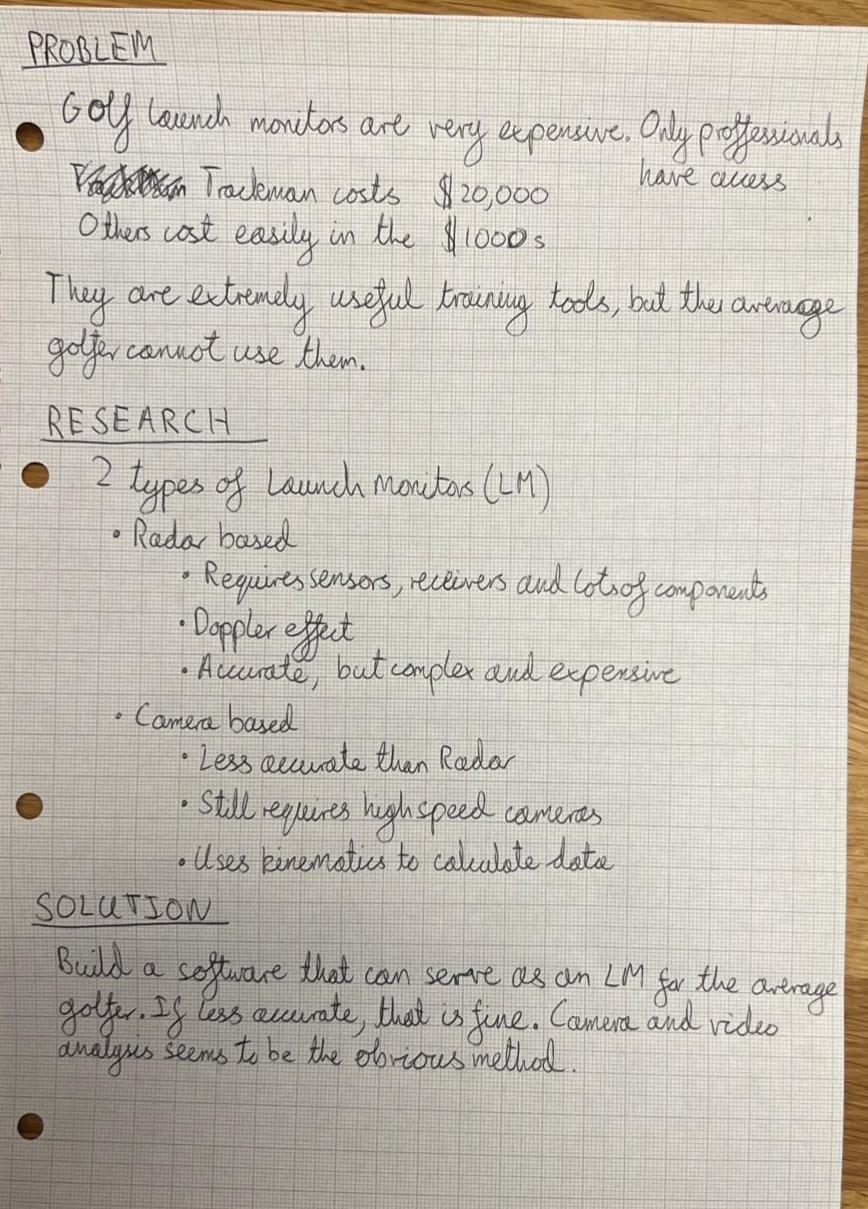 PROBLEM
Golf launch monitors are very expensive. Only proffessionals
have access
Trackman costs $20,000
Others cost easily in the $1000s
They are extremely useful training tools, but the average
golfer cannot use them.
RESEARCH
2 types of Launch Monitors (LM)
• Radar based
• Requires sensors, receivers and lots of components
• Doppler effect
• Accurate, but complex and expensive
• Camera based
• Less accurate than Radar
• Still requires high speed cameras
• Uses kinematics to calculate data
SOLUTION
Build a software that can serve as an LM for the average
golfer. If less accurate, that is fine. Camera and video
analysis seems to be the obvious method.